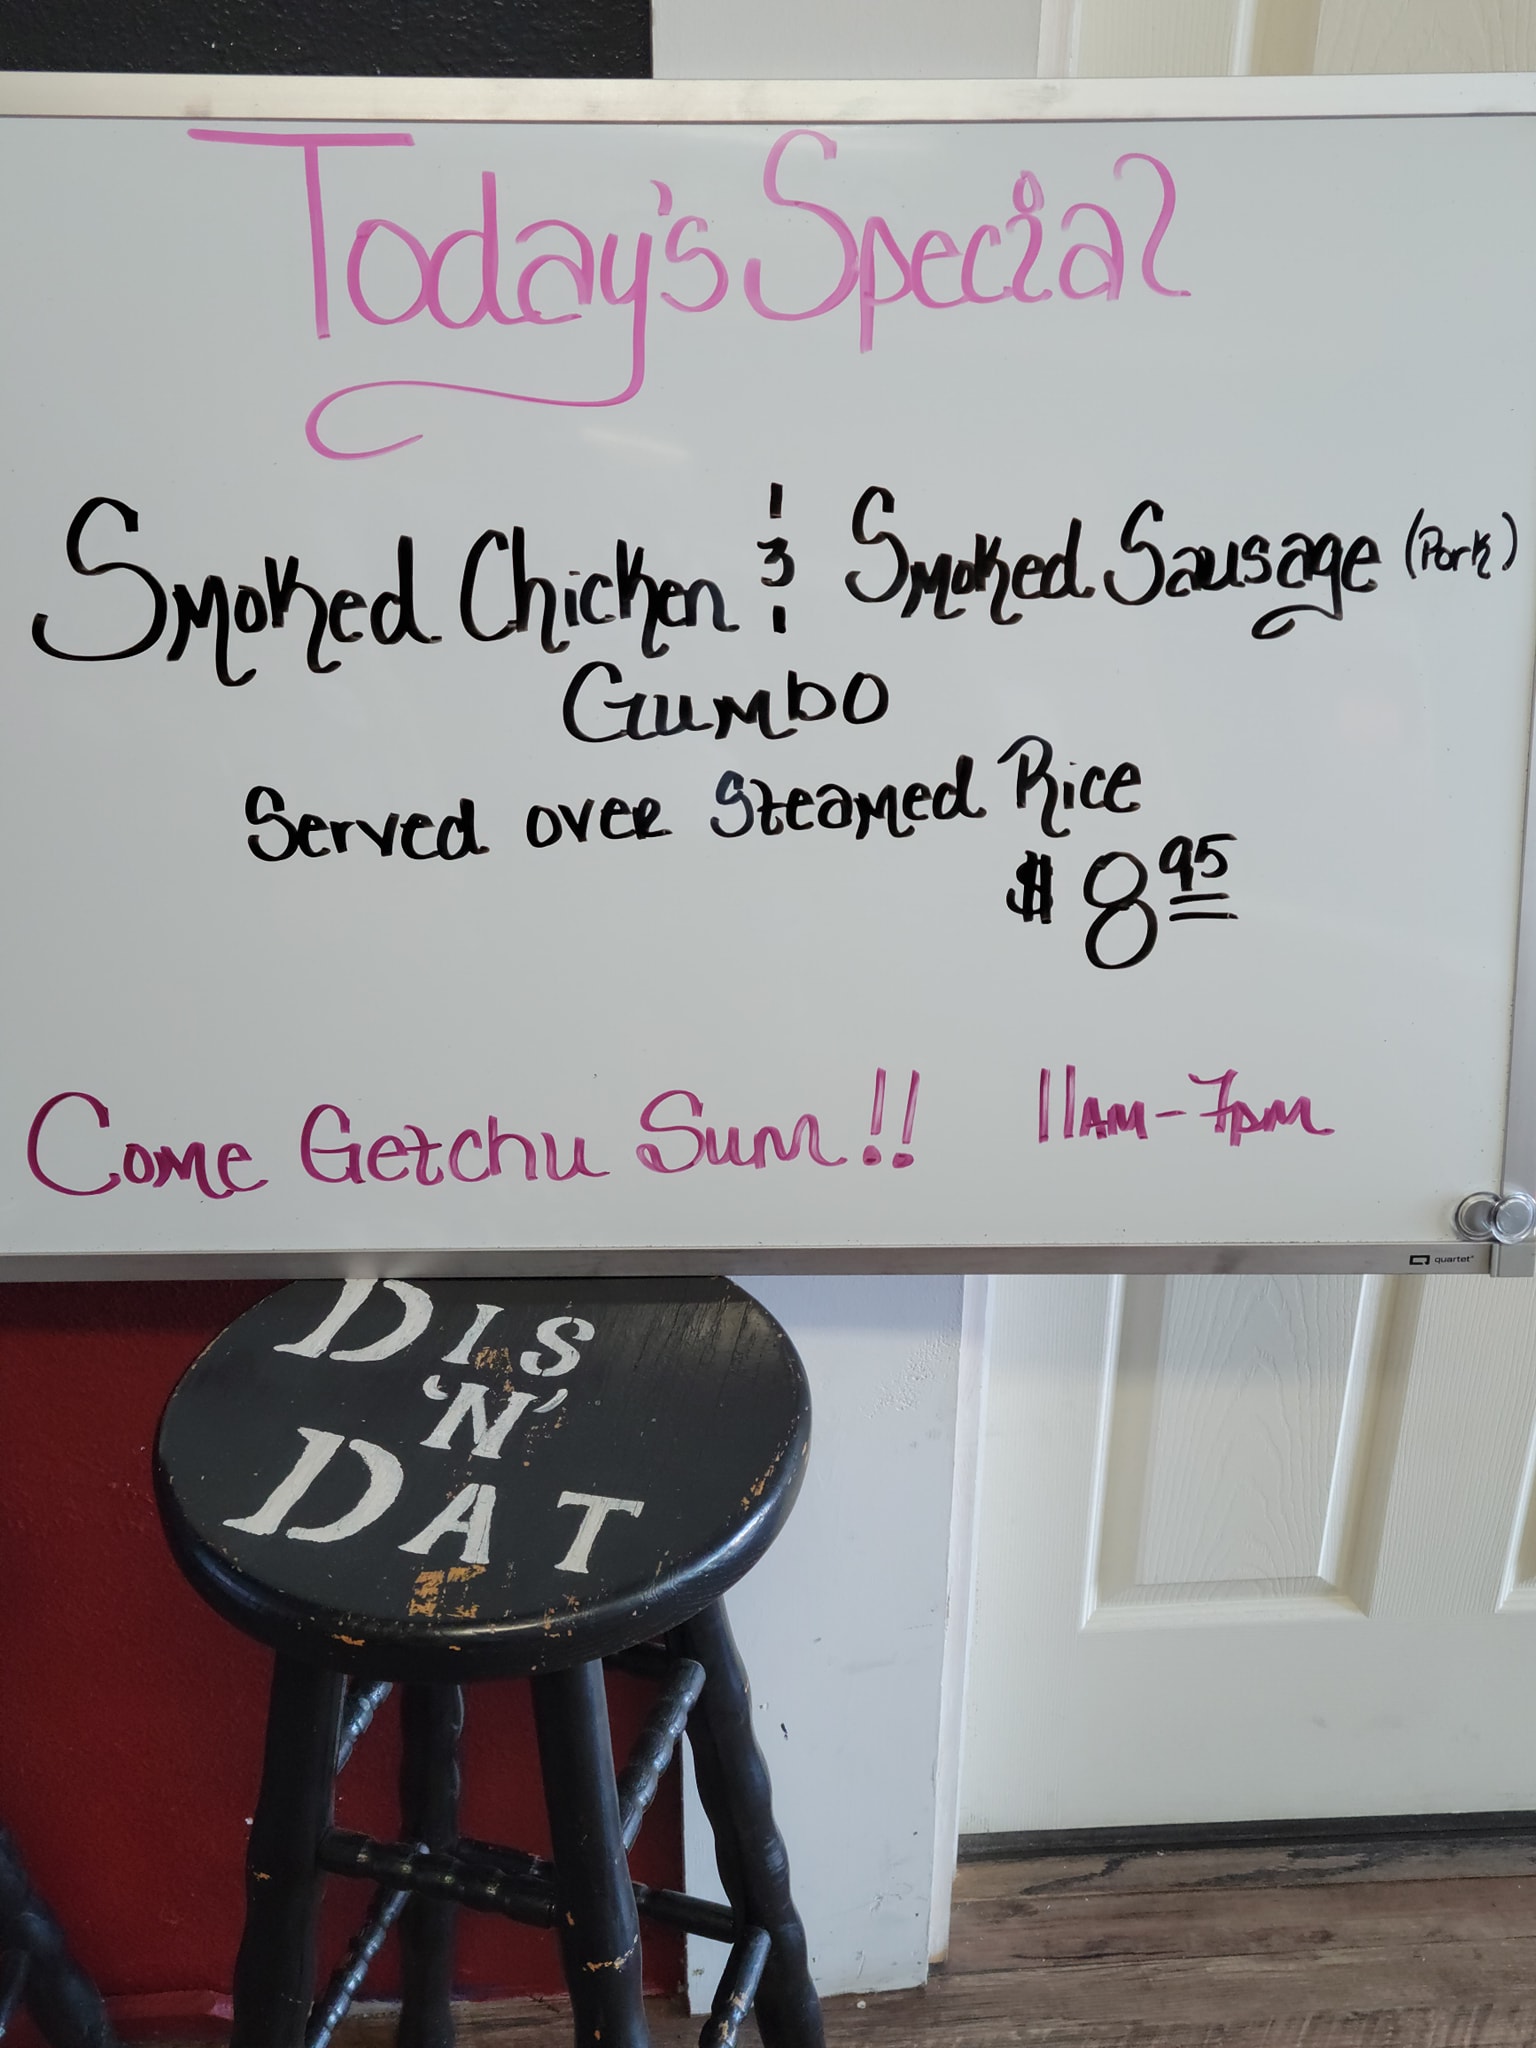 Today's Special
Smoked Chicken & Smoked Sausage (Pork)
Gumbo
Served over Steamed Rice
$ 8 95
Come Getchu Sum!! 11AM-7pm
quartet
DIS
'N'
DAT